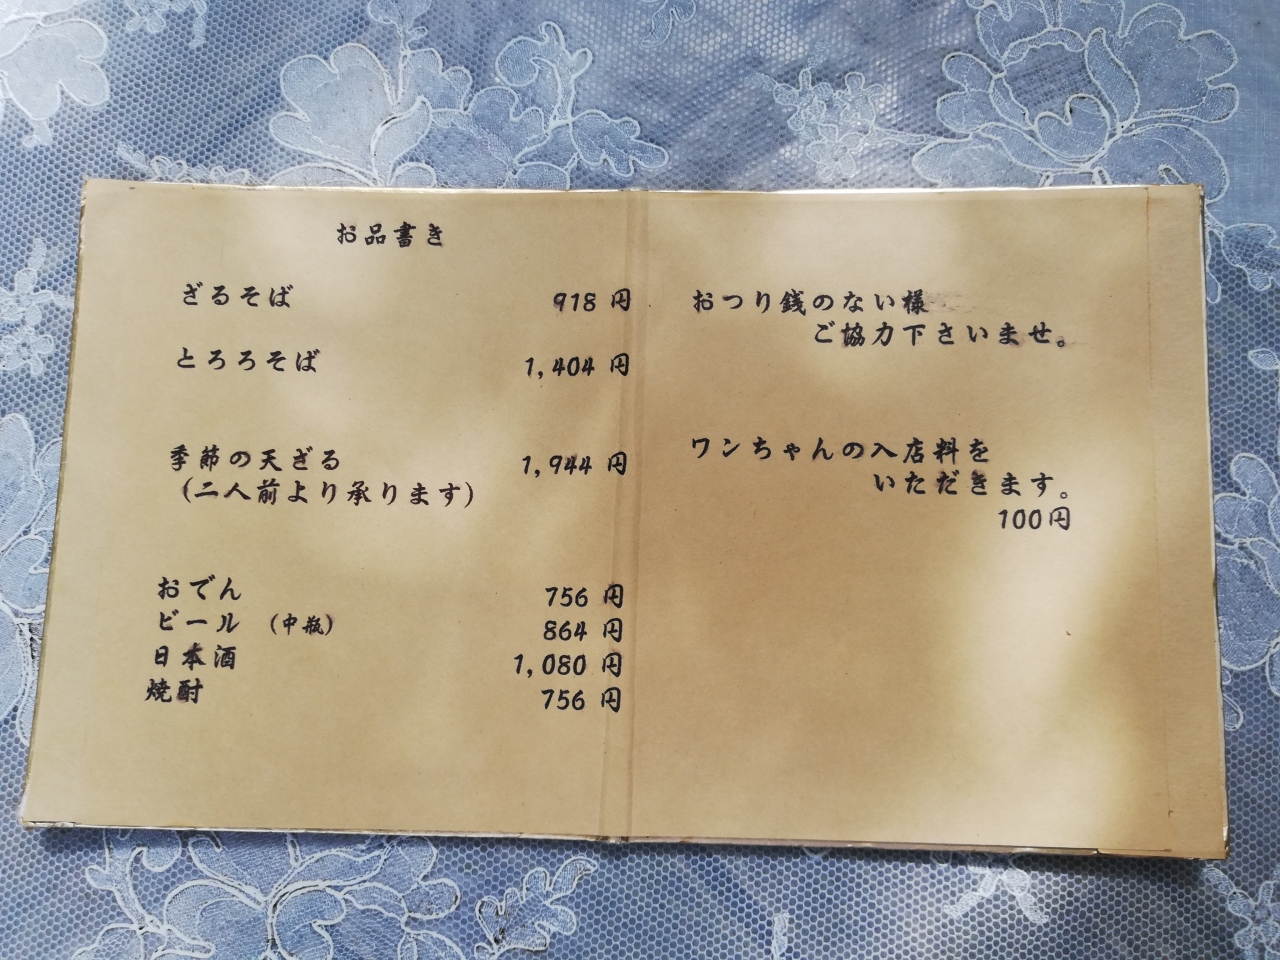 お品書き
ざるそば 918 円
とろろそば 1,404 円
季節の天ざる 1,944 円
(二人前より承ります)
おでん 756 円
ビール (中瓶) 864 円
日本酒 1,080 円
焼酎 756 円
おつり銭のない様
ご協力下さいませ。
ワンちゃんの入店料を
いただきます。
100円